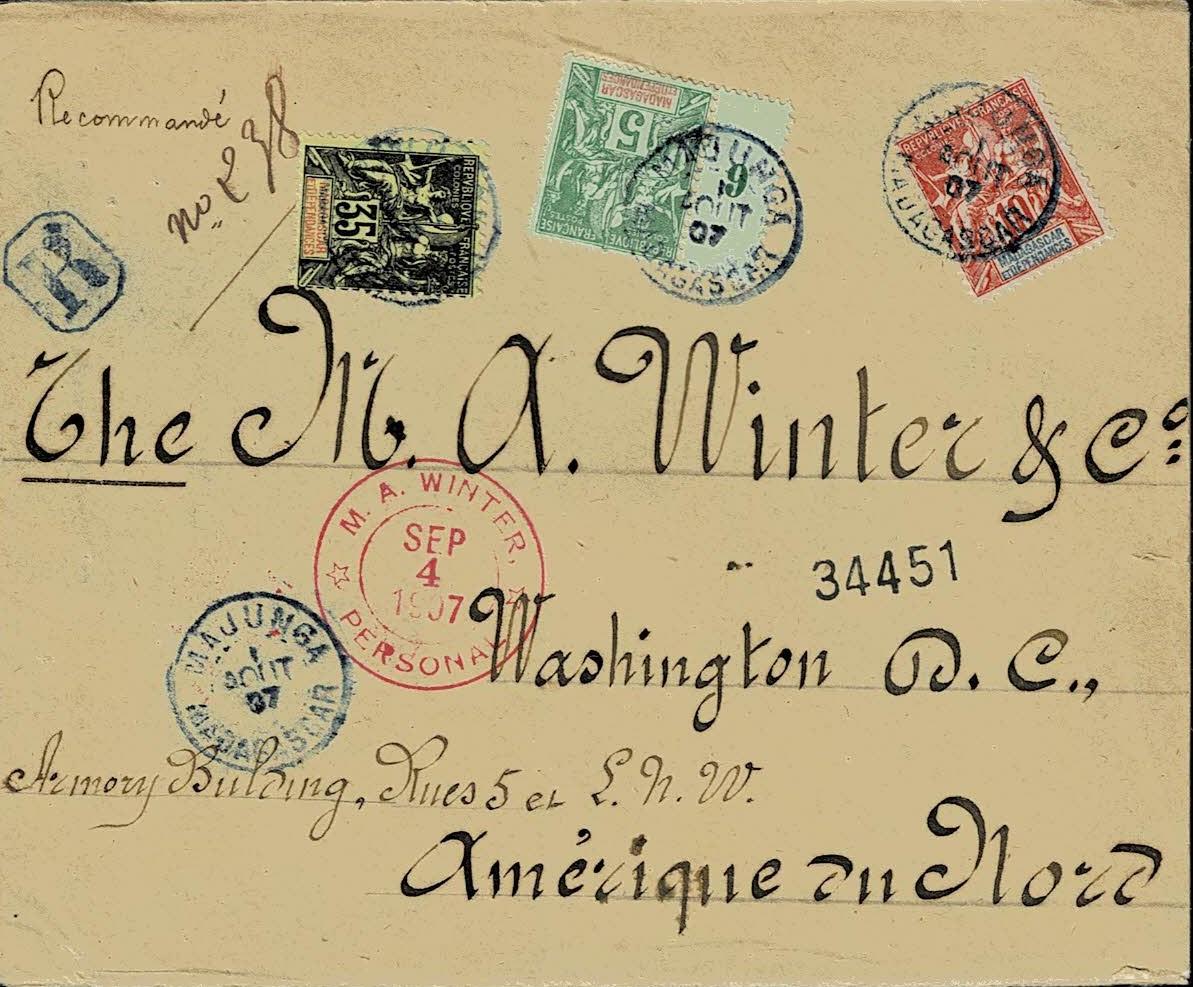 Recommandé
no 238
R
REPUBLIQUE FRANÇAISE
COLONIES POSTES
35
MADAGASCAR
ET DÉPENDANCES
MADAGASCAR
ET DÉPENDANCES
5
REPUBLIQUE FRANÇAISE
6
MAJUNGA
1
AOUT
07
MADAGASCAR
REPUBLIQUE FRANÇAISE
10
MADAGASCAR
ET DÉPENDANCES
AOUT
07
MADAGASCAR
The M. A. Winter & Co
M. A. WINTER.
SEP
4
1907
PERSONAL
34451
Washington D. C.,
MAJUNGA
1
AOUT
07
MADAGASCAR
Armory Bulding, Rues 5 et L. N. W.
Amérique du Nord